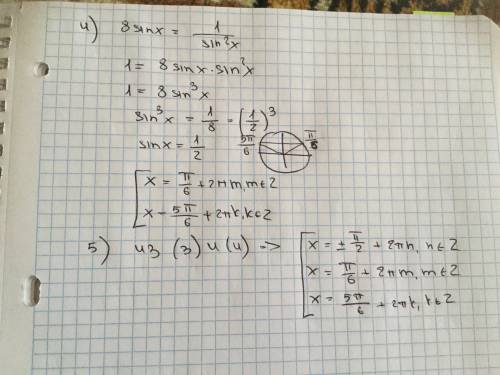 4) 8sinx = 1/sin²x
1 = 8sinx·sin²x
1 = 8sin³x
sin³x = 1/8 = (1/2)³
sinx = 1/2
5π/6 π/6
[ x = π/6 + 2πm, m∈Z
x = 5π/6 + 2πk, k∈Z
5) из (3) и (4) => [ x = ± π/2 + 2πn, n∈Z
x = π/6 + 2πm, m∈Z
x = 5π/6 + 2πk, k∈Z